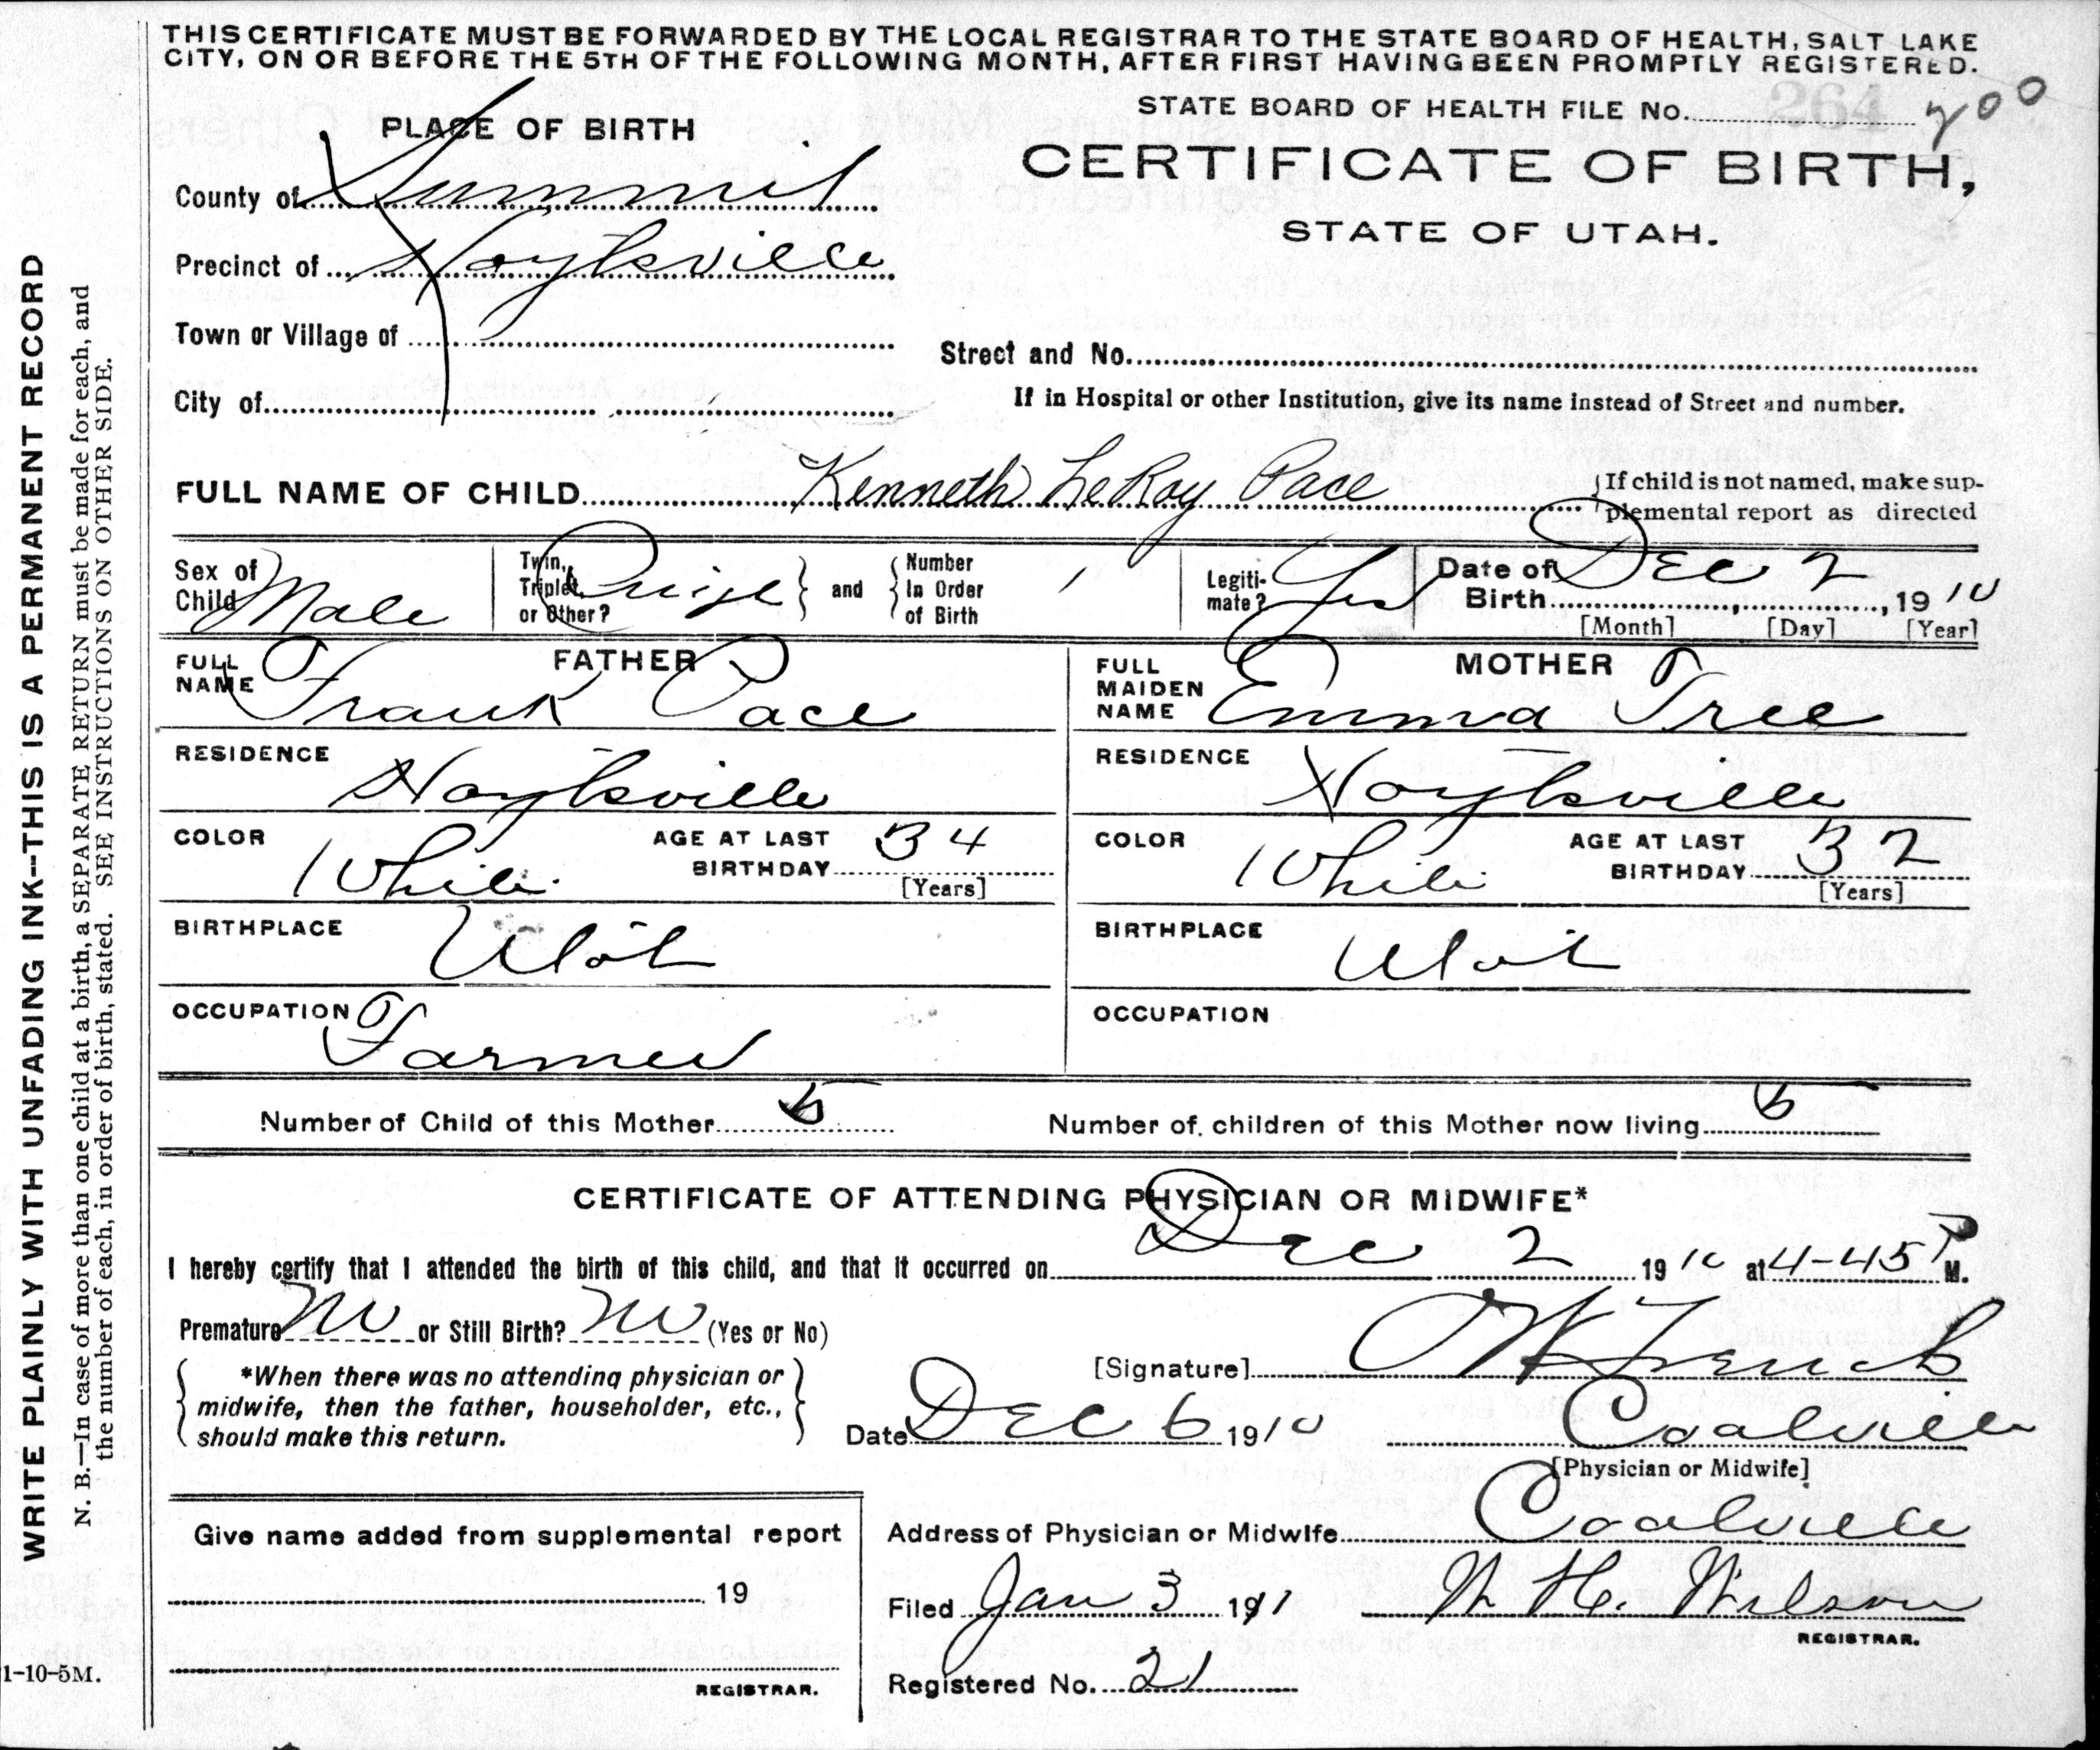 THIS CERTIFICATE MUST BE FORWARDED BY THE LOCAL REGISTRAR TO THE STATE BOARD OF HEALTH, SALT LAKE
CITY, ON OR BEFORE THE 5TH OF THE FOLLOWING MONTH, AFTER FIRST HAVING BEEN PROMPTLY REGISTERED.
PLACE OF BIRTH
STATE BOARD OF HEALTH FILE No. 264 700
CERTIFICATE OF BIRTH,
STATE OF UTAH.
County of Summit
Precinct of Hoytsville
Town or Village of
Street and No.
City of
If in Hospital or other Institution, give its name instead of Street and number.
FULL NAME OF CHILD Kenneth LeRoy Pace
If child is not named, make sup-
plemental report as directed
Sex of Child Male
Twin, Triplet, or Other?
and
Number In Order of Birth 1
Legiti-mate? Yes
Date of Birth Dec 2, 1910
[Month] [Day] [Year]
FATHER
FULL NAME Frank Pace
MOTHER
FULL MAIDEN NAME Emma Tree
RESIDENCE Hoytsville
RESIDENCE Hoytsville
COLOR White AGE AT LAST BIRTHDAY 34 [Years]
COLOR White AGE AT LAST BIRTHDAY 32 [Years]
BIRTHPLACE Utah
BIRTHPLACE Utah
OCCUPATION Farmer
OCCUPATION
Number of Child of this Mother
Number of children of this Mother now living
CERTIFICATE OF ATTENDING PHYSICIAN OR MIDWIFE*
I hereby certify that I attended the birth of this child, and that it occurred on Dec 2 1910 at 4-45 P M.
Premature No or Still Birth? No (Yes or No)
*When there was no attending physician or
midwife, then the father, householder, etc.,
should make this return.
[Signature]
Date Dec 6 1910 Coalville
[Physician or Midwife]
Address of Physician or Midwife Coalville
Give name added from supplemental report
19
REGISTRAR.
Filed Jan 3 1911 Wilson
REGISTRAR.
Registered No. 21
WRITE PLAINLY WITH UNFADING INK--THIS IS A PERMANENT RECORD
N. B.—In case of more than one child at a birth, a SEPARATE RETURN must be made for each, and
the number of each, in order of birth, stated. SEE INSTRUCTIONS ON OTHER SIDE.
1-10-5M.